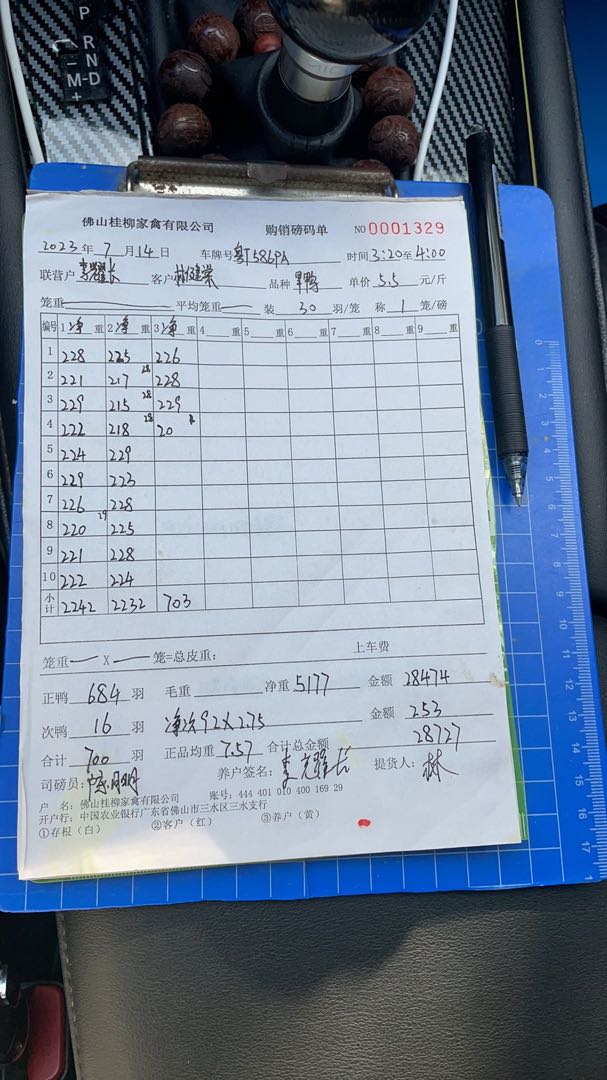 P
R
N
D
M
+
佛山桂柳家禽有限公司 购销磅码单 NO 0001329
2023年 7月 14日 车牌号 粤T5869A 时间 3:20至4:00
联营户 李耀长 客户 林健荣 品种 旱鸭 单价 5.5 元/斤
笼重 平均笼重 装 30 羽/笼 称 1 笼/磅
编号 1净重 2净重 3净重 4 重 5 重 6 重 7 重 8 重 9 重
1 228 225 226
2 221 217 28 228
3 229 215 28 229
4 222 218 28 20
5 224 229
6 229 223
7 226 228
8 220 29 225
9 221 228
10 222 224
小计 2242 2232 703
笼重 一 X 一 笼=总皮重: 上车费
正鸭 684 羽 毛重 净重 5177 金额 28474
次鸭 16 羽 净次92X2.75 金额 253
合计 700 羽 正品均重 7.57 合计总金额 28727
司磅员: 养户签名: 李耀长 提货人: 林
户 名: 佛山桂柳家禽有限公司 账号: 444 401 010 400 169 29
开户行: 中国农业银行广东省佛山市三水区三水支行
①存根(白) ②客户(红) ③养户(黄)
0
1
2
3
4
5
6
7
8
9
10
11
12
13
14
15
16
17